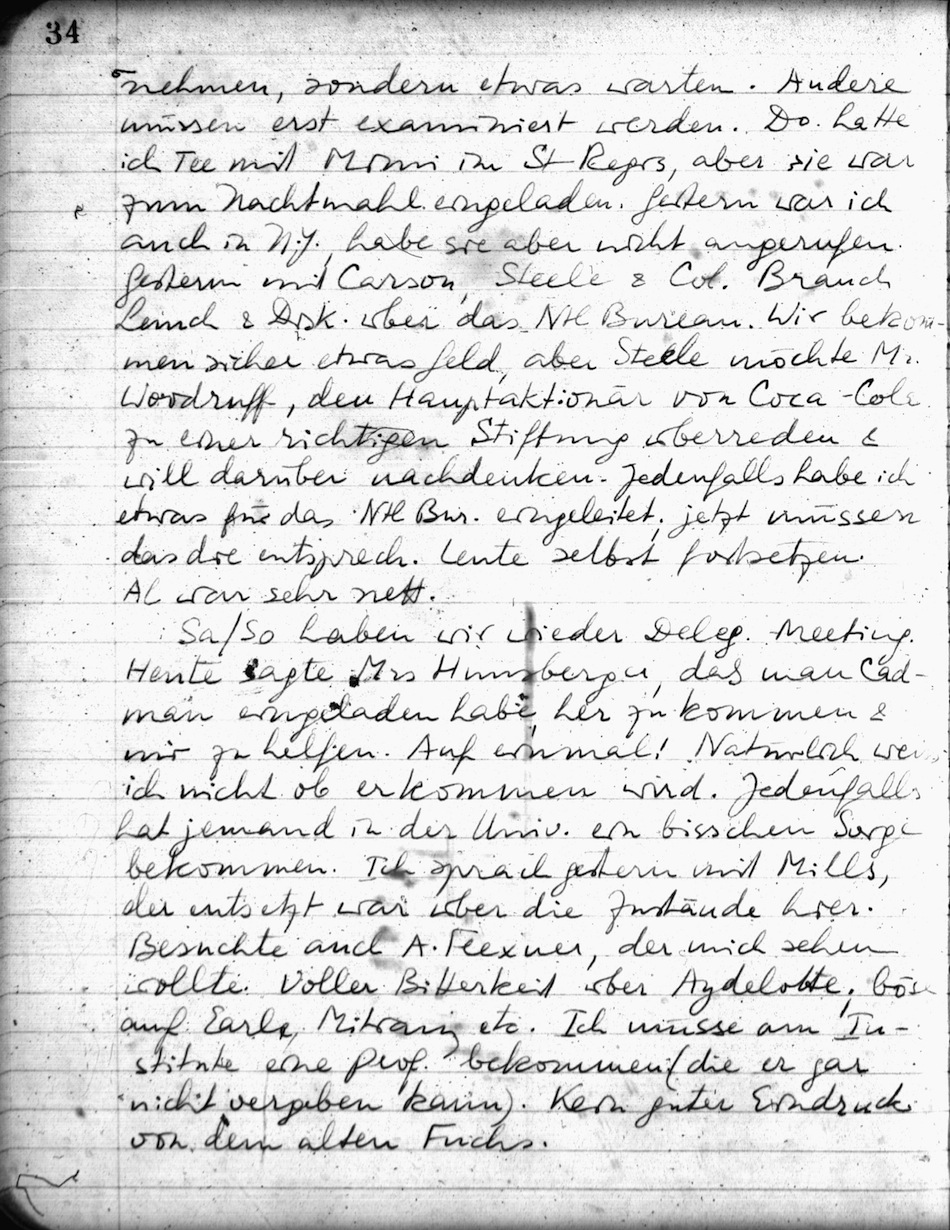 34
nehmen, sondern etwas warten. Andere
müssen erst examiniert werden. Do. hatte
ich Tee mit Mimi im St Regis, aber sie war
zum Nachtmahl eingeladen. Gestern war ich
auch in N.Y., habe sie aber nicht angerufen.
Gestern mit Carson, Steele & Col. Branch
Lunch & Disk. über das Ntl Bureau. Wir bekom-
men sicher etwas Geld, aber Steele möchte Mr.
Woodruff, den Hauptaktionär von Coca-Cola
zu einer richtigen Stiftung überreden &
will darüber nachdenken. Jedenfalls habe ich
etwas für das Ntl Bur. eingeleitet; jetzt müssen
das die entsprech. Leute selbst fortsetzen.
Al war sehr nett.
Sa/So haben wir wieder Deleg. Meeting.
Heute sagte Mrs Hunsberger, das man Cad-
man eingeladen habe, her zu kommen &
mir zu helfen. Auf einmal! Natürlich weiss
ich nicht ob er kommen wird. Jedenfalls
hat jemand in der Univ. ein bisschen Sorge
bekommen. Ich sprach gestern mit Mills,
der entsetzt war über die Zustände hier.
Besuchte auch A. Flexner, der mich sehen
wollte. Voller Bitterkeit über Aydelotte; böse
auf Earle, Mitrany etc. Ich müsse am In-
stitute eine Prof. bekommen (die er gar
nicht vergeben kann). Kein guter Eindruck
von dem alten Fuchs.